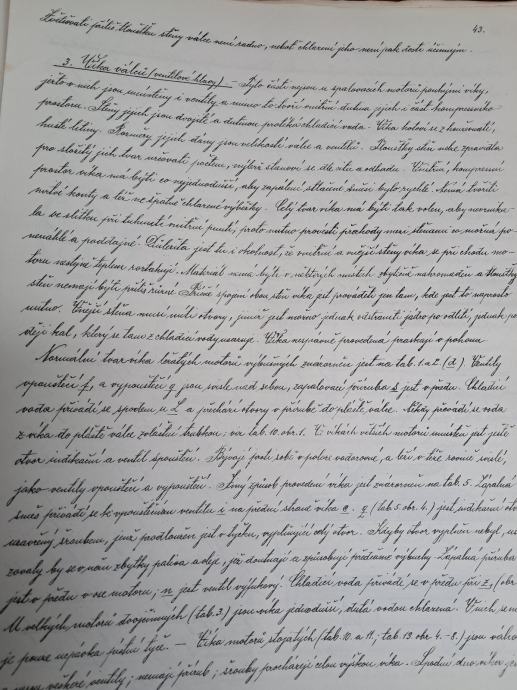 43.
Zvětšovati příliš tloušťku stěny válce není radno, neboť chlazení jeho není pak dosti účinným.
3. Víka válců (ventilové hlavy) – Tyto části nejsou u spalovacích motorů pouhými víky,
ježto v nich jsou umístěny i ventily a mimo to tvoří vnitřní dutina jejich i část kompressního
prostoru. Stěny jejich jsou dvojité a dutinou protéká chladicí voda. Víka hotoví se z
husté litiny. Rozměry jejich dány jsou velikostí válce a ventilů. Tloušťky stěn nelze zpravidla
pro složitý jich tvar určovati počtem, nýbrž stanoví se dle citu a odhadu. Vnitřní kompressní
prostor víka má býti co nejjednodušší, aby zapálení stlačené směsi bylo rychlé. Nemá tvořiti
mrtvé kouty a též ne špatně chlazené výběžky. Celý tvar víka má býti tak volen, aby nevznika-
la se slitku při tuhnutí vnitřní pnutí, proto nutno provésti přechody mezi stěnami co možná po-
nenáhlé a poddajné. Důležitá jest tu i okolnost, že vnitřní a vnější stěny víka se při chodu mo-
toru nestejně teplem roztahují. Materiál nemá býti v některých místech zbytečně nahromaděn a tloušťky
stěn nemají býti příliš různé. Příčné spojení obou stěn víka jest prováděti jen tam, kde jest to naprosto
nutno. Vnější stěna musí míti otvory, jimiž jest možno jednak odstraniti jádro po odlití, jednak po-
ději kal, který se tam z chladicí vody usazuje. Víka nesprávně provedená praskají v pohonu
Normální tvar víka ležatých motorů výbušných znázorněn jest na tab. 1. a 2. (d). Ventily
vpouštěcí f, a vypouštěcí g jsou svisle nad sebou, zapalovací příruba s jest v předu. Chladicí
voda přivádí se spodem u L a přechází otvory v přírubě do pláště válce. Někdy provádí se voda
z víka do pláště válce zvláštní trubkou; viz tab. 10. obr. 1. V víkách větších motorů umístěn jest ještě
otvor indikační a ventil spouštěcí. Bývají podle sebe v poloze vodorovné, a též v téže rovině svislé,
jako ventily vpouštěcí a vypouštěcí. Jiný způsob provedení víka jest znázorněn na tab. 5. Zápalná
směs přivádí se ke vpouštěcímu ventilu i na přední straně víka a. q (tab. 5. obr. 4.) jest indikační otvor
uzavřený šroubem, jenž prodloužen jest v tyčku, vyplňující celý otvor. Kdyby otvor vyplněn nebyl,
zovaly by se v něm zbytky paliva a oleje, jež doutnají a způsobují předčasné výbuchy. Zápalná příruba
jest v předu v ose motoru; n jest ventil výfukový. Chladicí voda přivádí se v předu při z, (obr.
U velkých motorů dvojčinných (tab. 3.) jsou víka jednodušší, dutá vodou chlazená. V nich
je pouze ucpávka pístní tyče. — Víka motorů stojatých (tab. 10. a 11.; tab. 13. obr. 4.-8.) jsou
veškeré ventily; nemají přírub; šrouby procházejí celou výškou víka. – Spodní dno